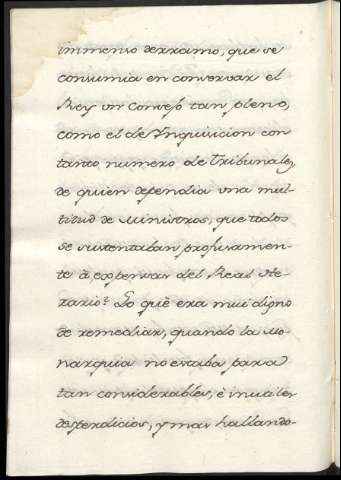 immenso derramo, que se
consumia en conservar el
Rey un Consejo tan pleno,
como el de Ynquisicion con
tanto numero de Tribunales,
de quien dependia una mul-
titud de Ministros, que todos
se sustentaban profusamen-
te à expensas del Real He-
rario: Lo què era mui digno
de remediar, quando la Mo-
narquia no estaba para
tan considerables, è inutiles
desperdicios, y mas hallando-